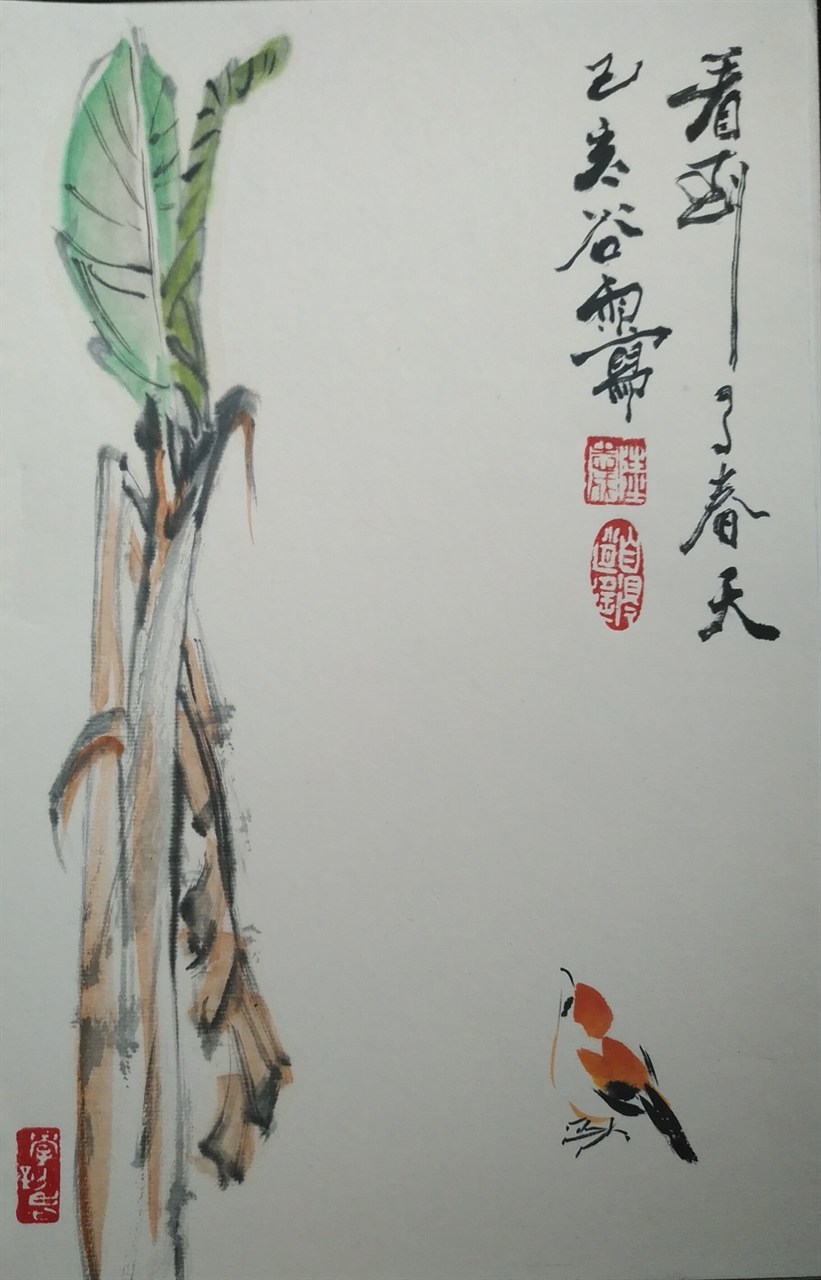 看到了春天
己亥谷雨寫